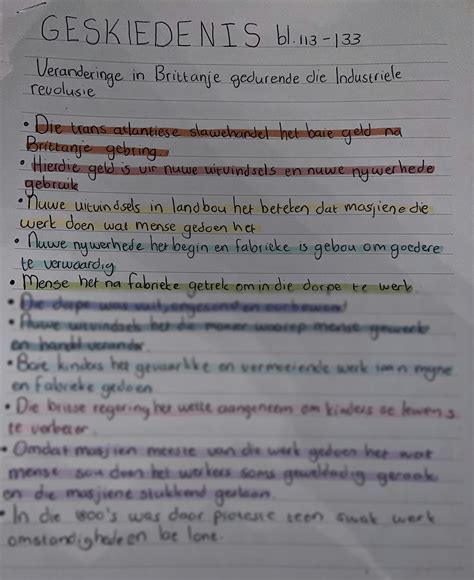 GESKIEDENIS bl.113-133
Veranderinge in Brittanje gedurende die Industriële
revolusie
• Die trans atlantiese slawehandel het baie geld na
Brittanje gebring
• Hierdie geld is vir nuwe uitvindsels en nuwe nywerhede
gebruik
• Nuwe uitvindsels in landbou het beteken dat masjiene die
werk doen wat mense gedoen het
• Nuwe nywerhede het begin en fabrieke is gebou om goedere
te verwaardig
• Mense het na fabrieke getrek om in die dorpe te werk
• Die dorpe was vuil, ongesond en oorbewond
• Nuwe uitvindsels het die manier waarop mense gewerk
en handel verander.
• Baie kinders het gevaarlike en vermoeiende werk in myne
en fabrieke gedoen
• Die britse regering het wette aangeneem om kinders se lewens
te verbeter.
• Omdat masjien meeste van die werk gedoen het wat
mense sou doen het werkers soms gewelddadig geraak
en die masjiene stukkend geslaan.
• In die 1800's was daar proteste teen swak werk
omstandighede en lae lone.